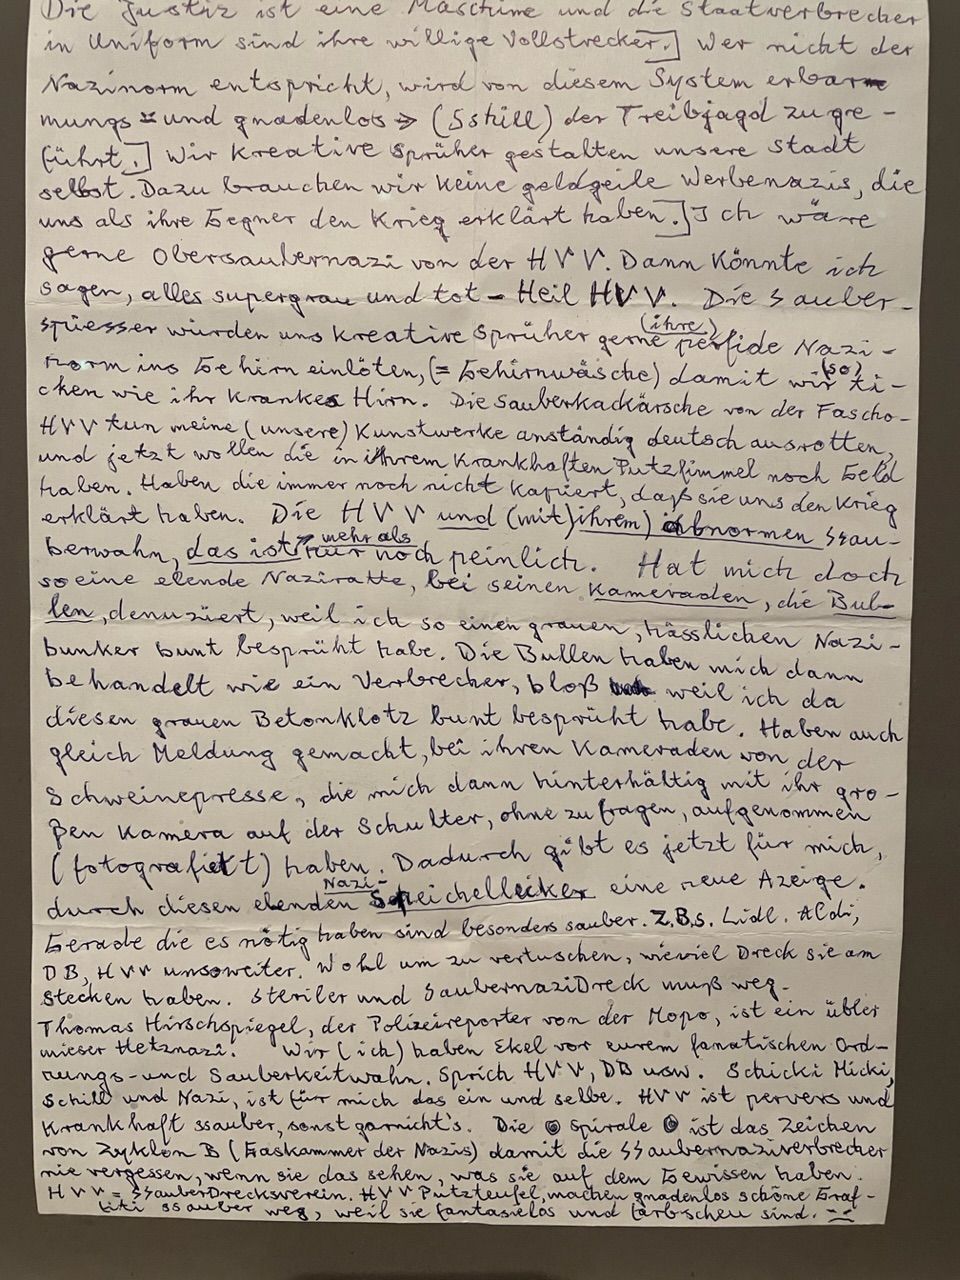 Die Justiz ist eine Maschine und die Staatverbrecher
in Uniform sind ihre willige Vollstrecker.] Wer nicht der
Nazinorm entspricht, wird von diesem System erbar-
mungs- und gnadenlos → (Sshill) der Treibjagd zuge-
führt.] Wir Kreative Sprüher gestalten unsere Stadt
selbst. Dazu brauchen wir keine geldgeile Werbenazis, die
uns als ihre Gegner den Krieg erklärt haben.] Ich wäre
gerne Obersaubernazi von der HVV. Dann könnte ich
sagen, alles supergrau und tot - Heil HVV. Die Sauber-
spiesser würden uns Kreative Sprüher gerne (ihre) perfide Nazi-
norm ins Gehirn einlöten, (= Gehirnwäsche) damit wir (so) ti-
cken wie ihr krankes Hirn. Die Sauberkackärsche von der Fascho-
HVV tun meine (unsere) Kunstwerke anständig deutsch ausrotten,
und jetzt wollen die in ihrem krankhaften Putzfimmel noch Geld
haben. Haben die immer noch nicht kapiert, daß sie uns den Krieg
erklärt haben. Die HVV und (mit) ihrem) abnormen SSau-
berwahn, das ist mehr als nur noch peinlich. Hat mich doch
so eine elende Naziratte, bei seinen Kameraden, die Bul-
len, denunziert, weil ich so einen grauen, hässlichen Nazi-
bunker bunt besprüht habe. Die Bullen haben mich dann
behandelt wie ein Verbrecher, bloß weil ich da
diesen grauen Betonklotz bunt besprüht habe. Haben auch
gleich Meldung gemacht, bei ihren Kameraden von der
Schweinepresse, die mich dann hinterhältig mit ihr gro-
ßen Kamera auf der Schulter, ohne zu fragen, aufgenommen
(fotografiert) haben. Dadurch gibt es jetzt für mich,
durch diesen elenden Nazi- Speichellecker eine neue Azeige.
Gerade die es nötig haben sind besonders sauber. Z.B.s. Lidl. Aldi,
DB, HVV unsoweiter. Wohl um zu vertuschen, wieviel Dreck sie am
stecken haben. Steriler und SaubernaziDreck muß weg.
Thomas Hirschspiegel, der Polizeireporter von der Mopo, ist ein übler
mieser Hetznazi. Wir (ich) haben Ekel vor eurem fanatischen Ord-
nungs- und Sauberkeitwahn. Sprich HVV, DB usw. Schicki Micki,
Schill und Nazi, ist für mich das ein und selbe. HVV ist pervers und
krankhaft ssauber, sonst garnicht's. Die spirale ist das Zeichen
von Zyklon B (Gaskammer der Nazis) damit die SSaubernaziverbrecher
nie vergessen, wenn sie das sehen, was sie auf dem Gewissen haben.
HVV = SSauberDrecksverein. HVV Putzteufel, machen gnadenlos schöne Graf-
fiti ssauber weg, weil sie fantasielos und farbscheu sind.